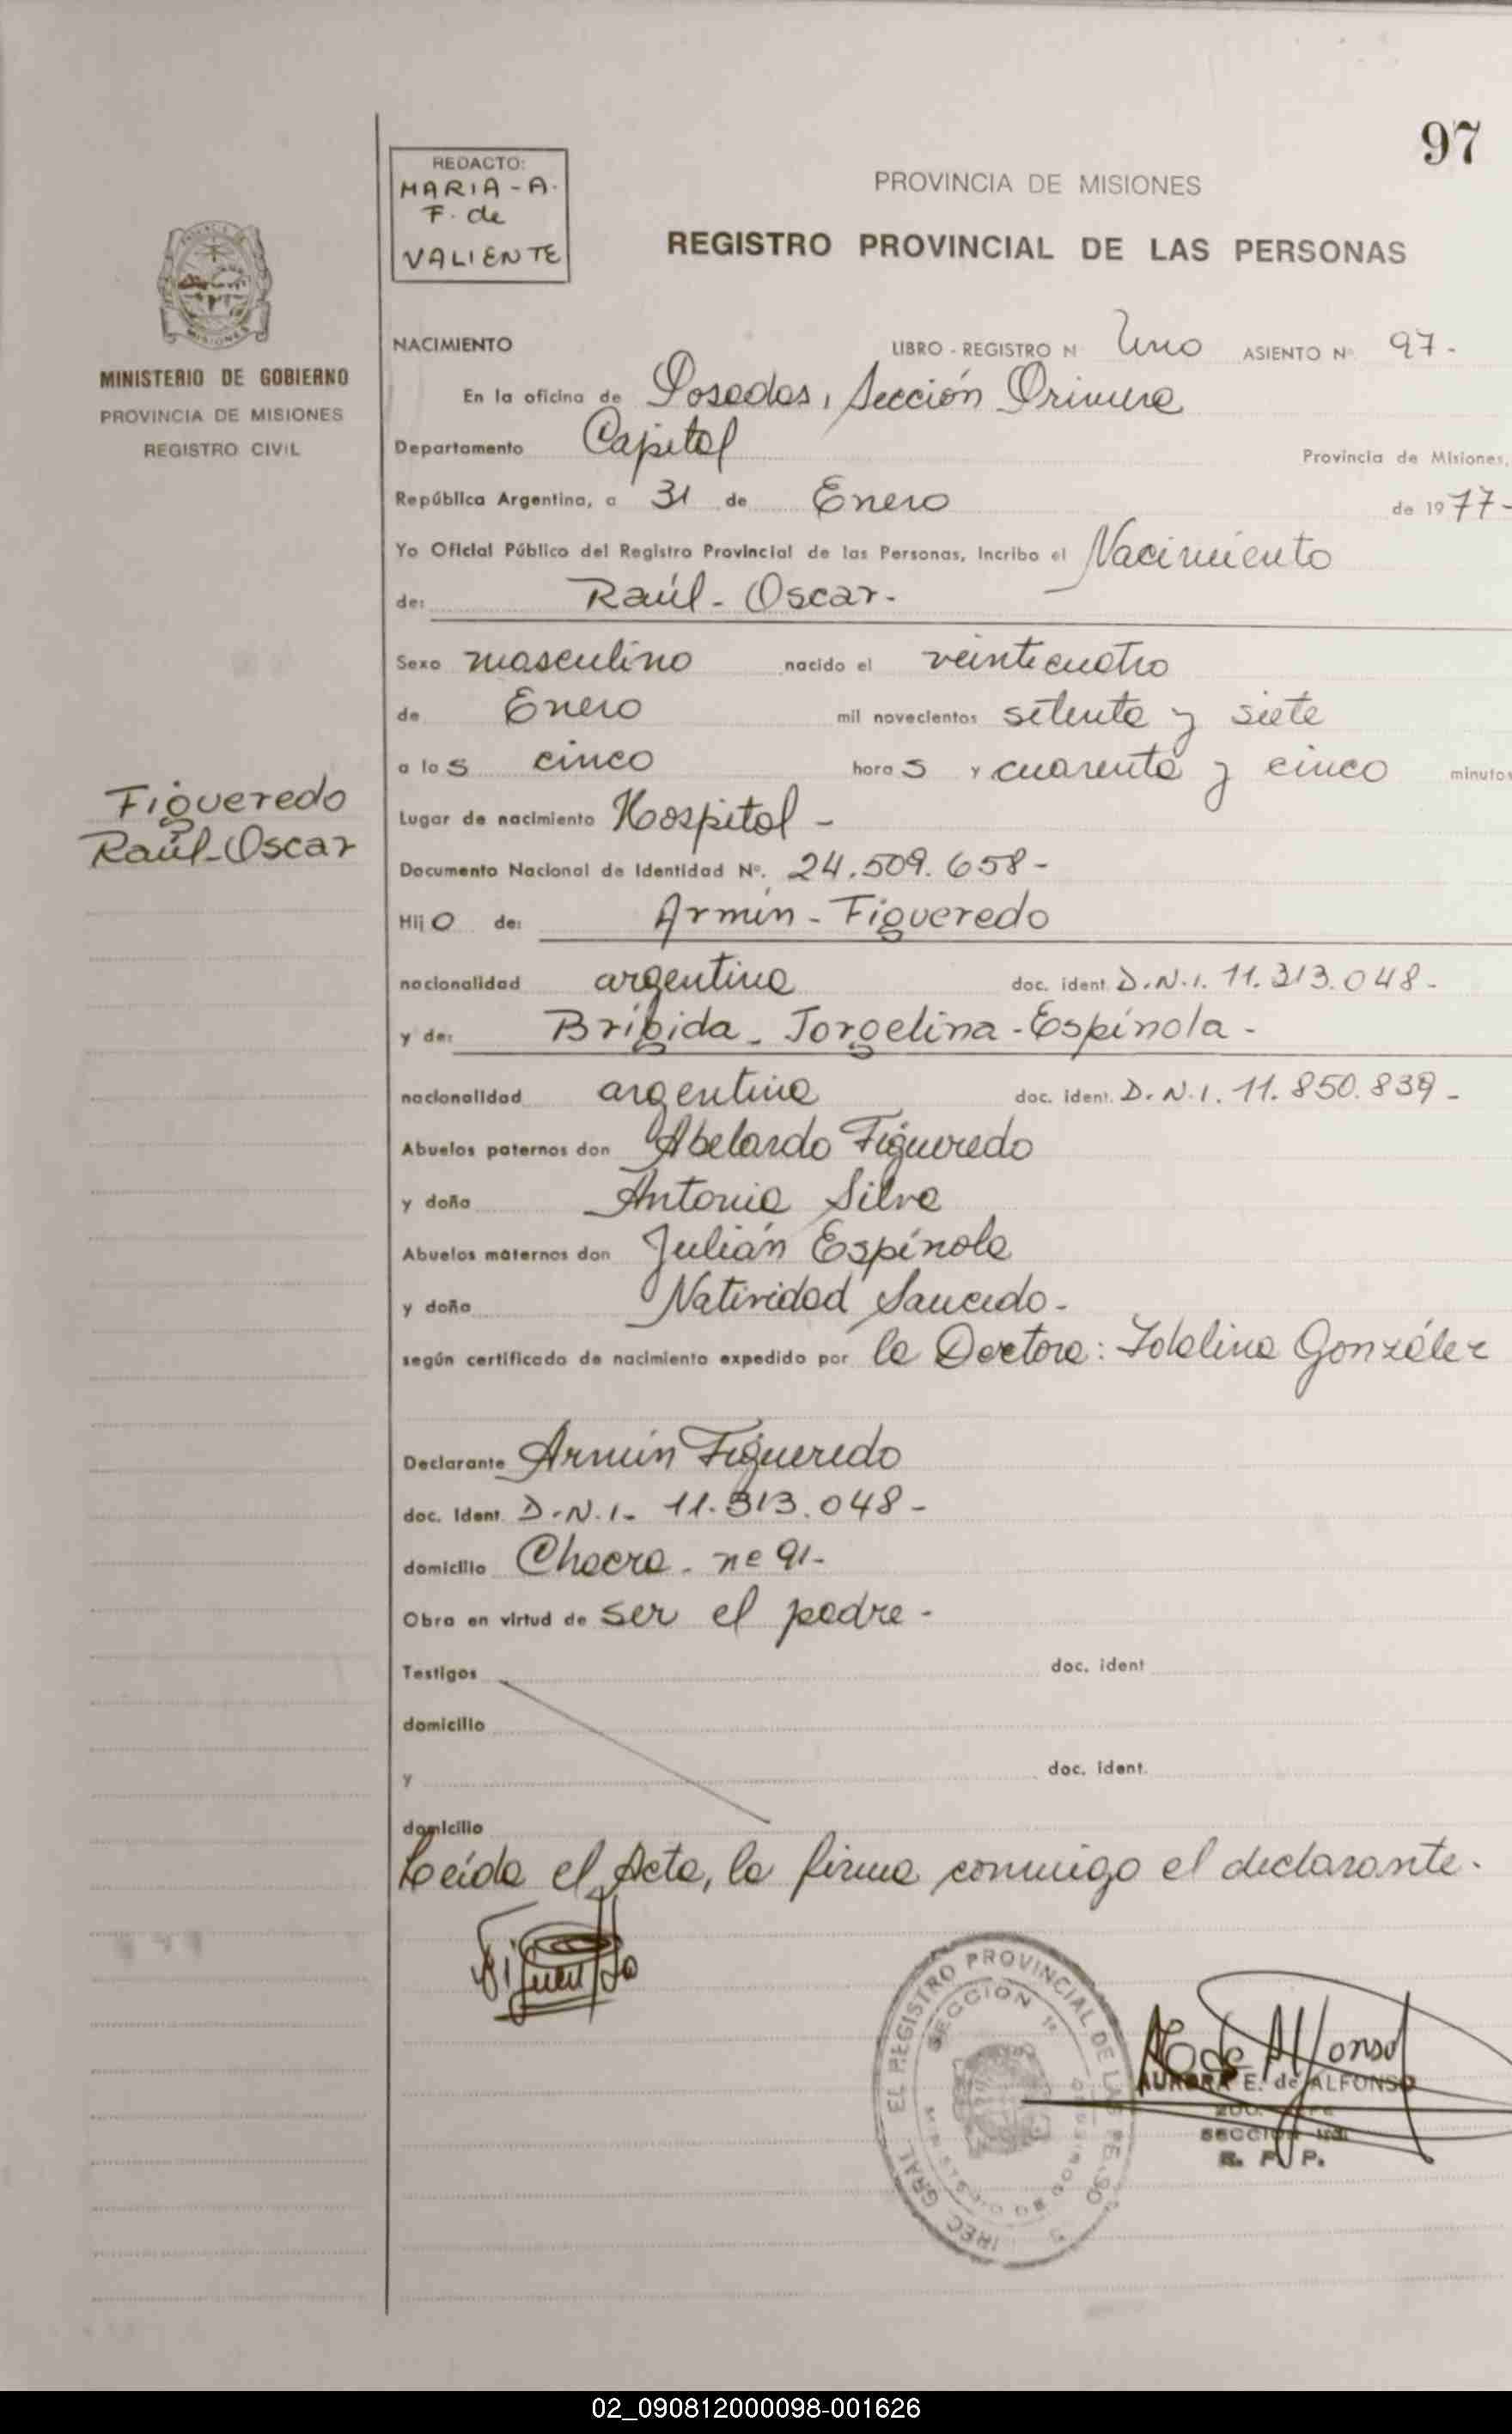 97
REDACTO:
MARIA - A.
F. de
VALIENTE
PROVINCIA DE MISIONES
REGISTRO PROVINCIAL DE LAS PERSONAS
MISIONES
MINISTERIO DE GOBIERNO
PROVINCIA DE MISIONES
REGISTRO CIVIL
NACIMIENTO LIBRO - REGISTRO N Uno ASIENTO Nº 97.-
En la oficina de Posadas, Sección Primera
Departamento Capital Provincia de Misiones,
República Argentina, a 31 de Enero de 1977-
Yo Oficial Público del Registro Provincial de las Personas, Incribo el Nacimiento
de: Raúl - Oscar.-
Sexo masculino nacido el veinticuatro
de Enero mil novecientos setenta y siete
a las cinco horas y cuarenta y cinco minutos
Figueredo
Raúl-Oscar
Lugar de nacimiento Hospital -
Documento Nacional de Identidad Nº. 24.509.658-
Hijo de: Armín - Figueredo
nacionalidad argentina doc. ident. D.N.I. 11.313.048-
y de: Brígida - Jorgelina - Espínola -
nacionalidad argentina doc. ident. D.N.I. 11.850.839-
Abuelos paternos don Abelardo Figueredo
y doña Antonia Silva
Abuelos maternos don Julián Espínola
y doña Natividad Saucedo-
según certificado de nacimiento expedido por la Doctora: Idalina González
Declarante Armín Figueredo
doc. Ident. D.N.I- 11.313.048-
domicilio Chacra - nº 91-
Obra en virtud de ser el padre -
Testigos doc. ident
domicilio
y doc. ident.
domicilio
Leída el Acta, la firma conmigo el declarante.
REGISTRO PROVINCIAL DE LAS
SECCION 1ª
AURORA E. de ALFONSO
SECCION
R. P. P.
02_090812000098-001626